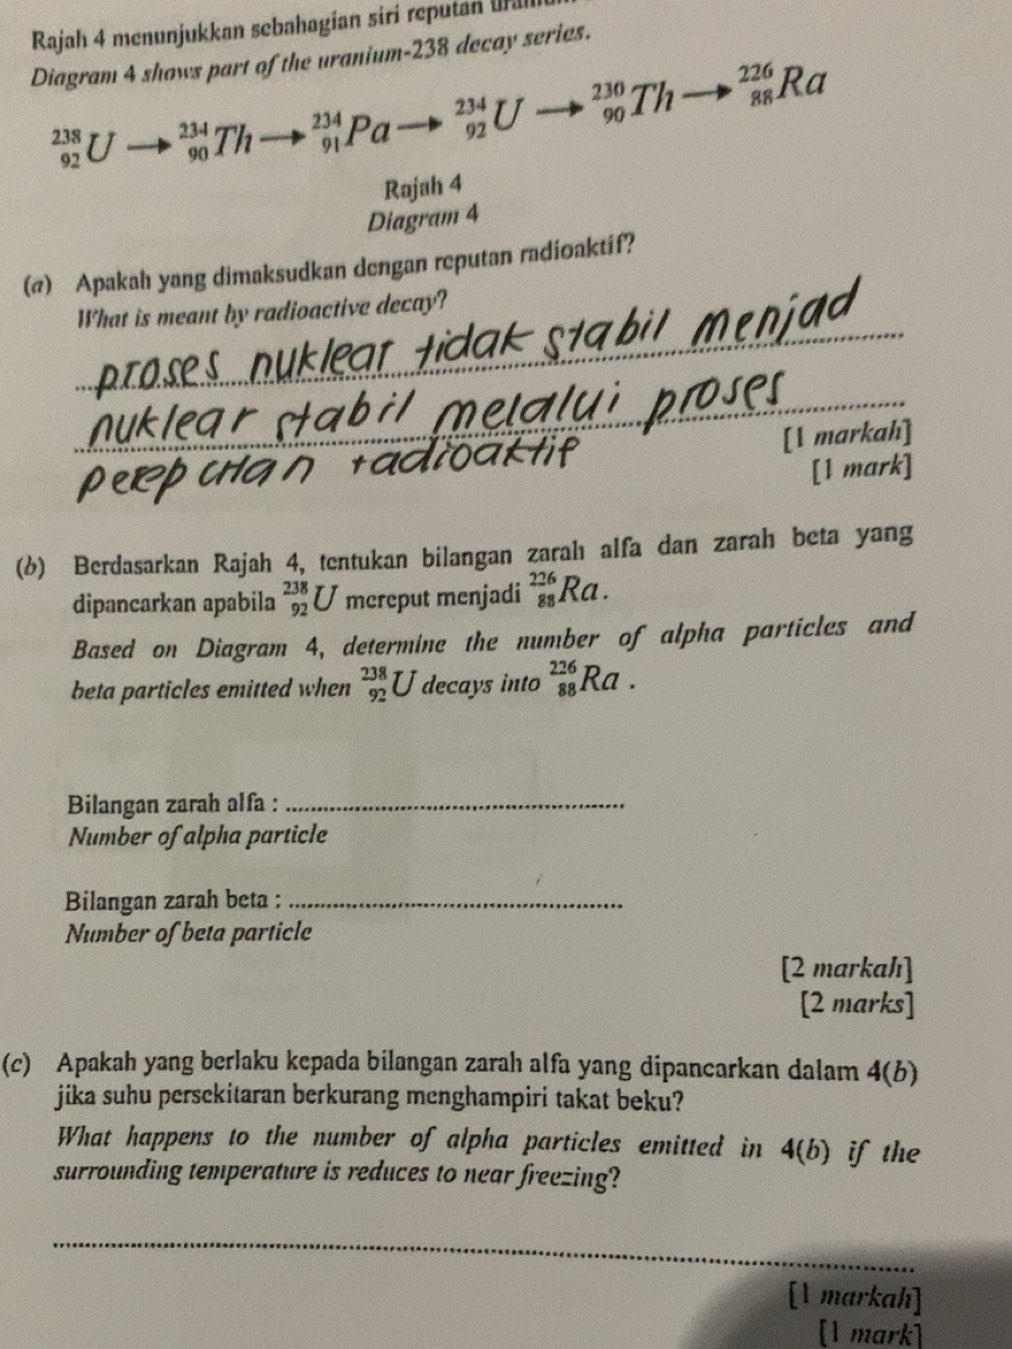 Rajah 4 menunjukkan sebahagian siri reputan
Diagram 4 shows part of the uranium-238 decay series.
²³⁸₉₂U → ²³⁴₉₀Th → ²³⁴₉₁Pa → ²³⁴₉₂U → ²³⁰₉₀Th → ²²⁶₈₈Ra
Rajah 4
Diagram 4
(a) Apakah yang dimaksudkan dengan reputan radioaktif?
What is meant by radioactive decay?
proses nuklear tidak stabil menjad
nuklear stabil melalui proses
[1 markah]
radioaktif
[1 mark]
(b) Berdasarkan Rajah 4, tentukan bilangan zarah alfa dan zarah beta yang
dipancarkan apabila ²³⁸₉₂U mereput menjadi ²²⁶₈₈Ra.
Based on Diagram 4, determine the number of alpha particles and
beta particles emitted when ²³⁸₉₂U decays into ²²⁶₈₈Ra .
Bilangan zarah alfa : ........................................
Number of alpha particle
Bilangan zarah beta : ........................................
Number of beta particle
[2 markah]
[2 marks]
(c) Apakah yang berlaku kepada bilangan zarah alfa yang dipancarkan dalam 4(b)
jika suhu persekitaran berkurang menghampiri takat beku?
What happens to the number of alpha particles emitted in 4(b) if the
surrounding temperature is reduces to near freezing?
[1 markah]
[1 mark]